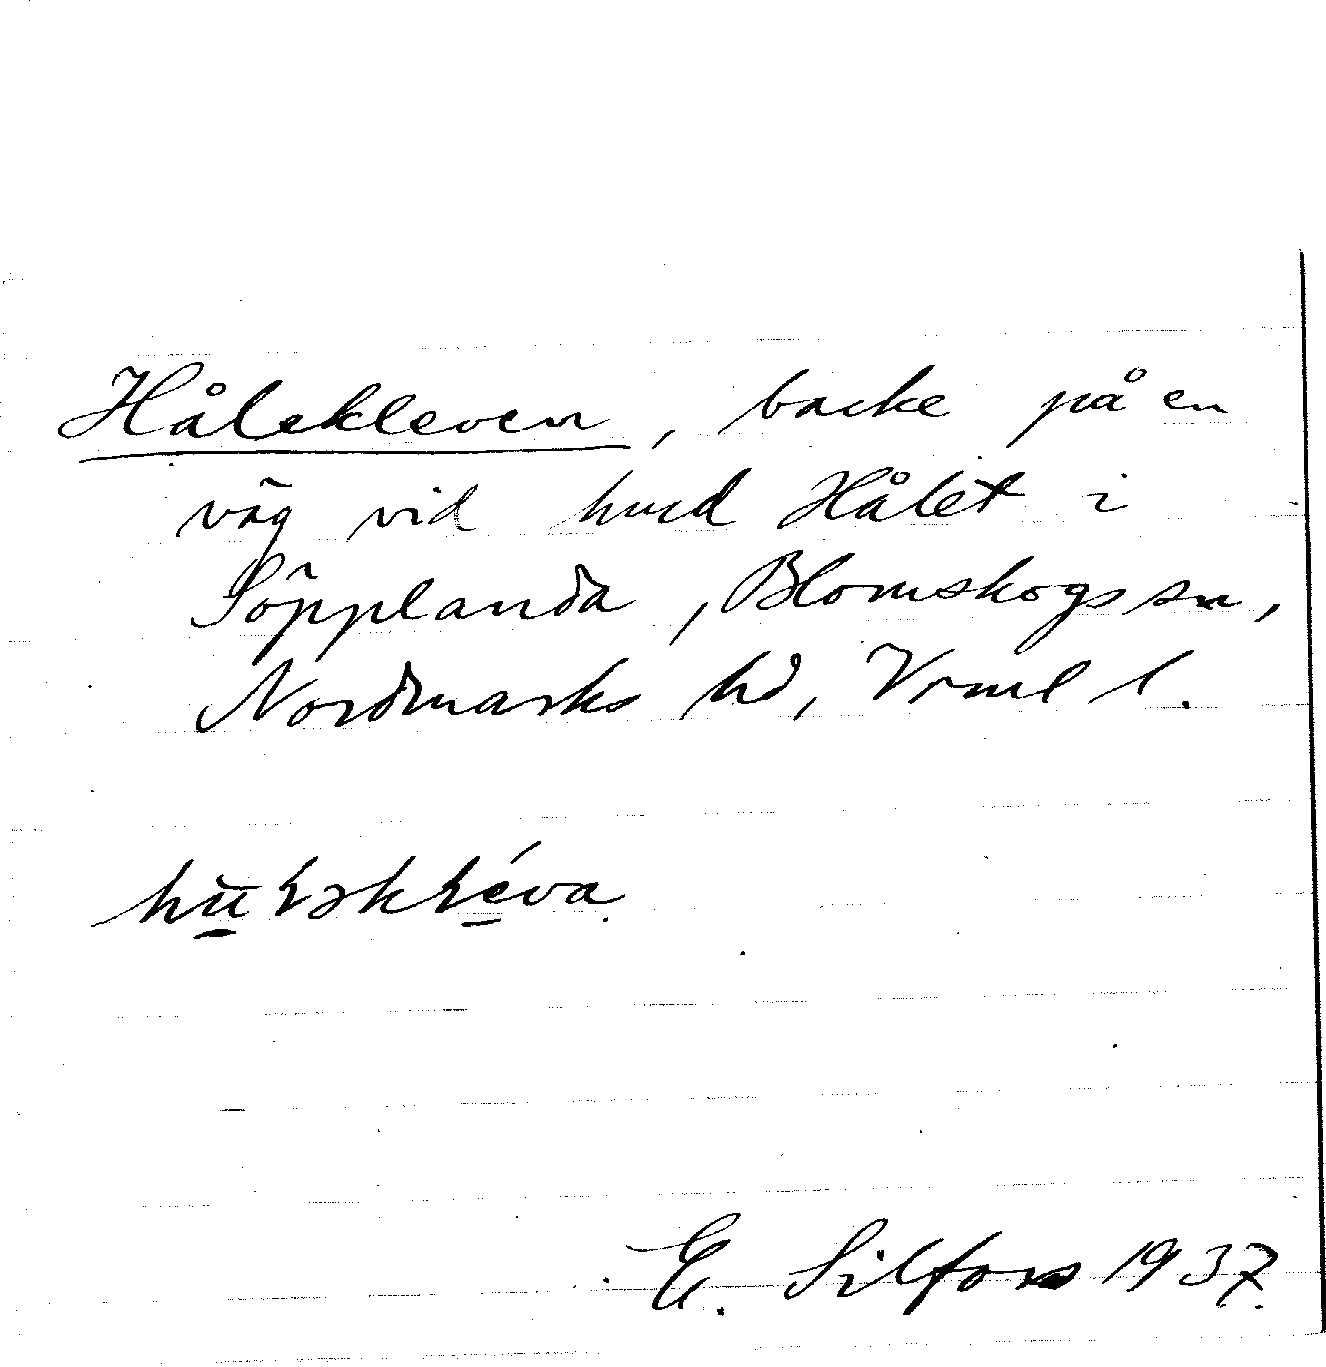 Hålekleven, backe på en
väg vid hmd Hålet i
Söpplanda, Blomskogs sn,
Nordmarks hd, Vrml l.
E. Silfors 1937.